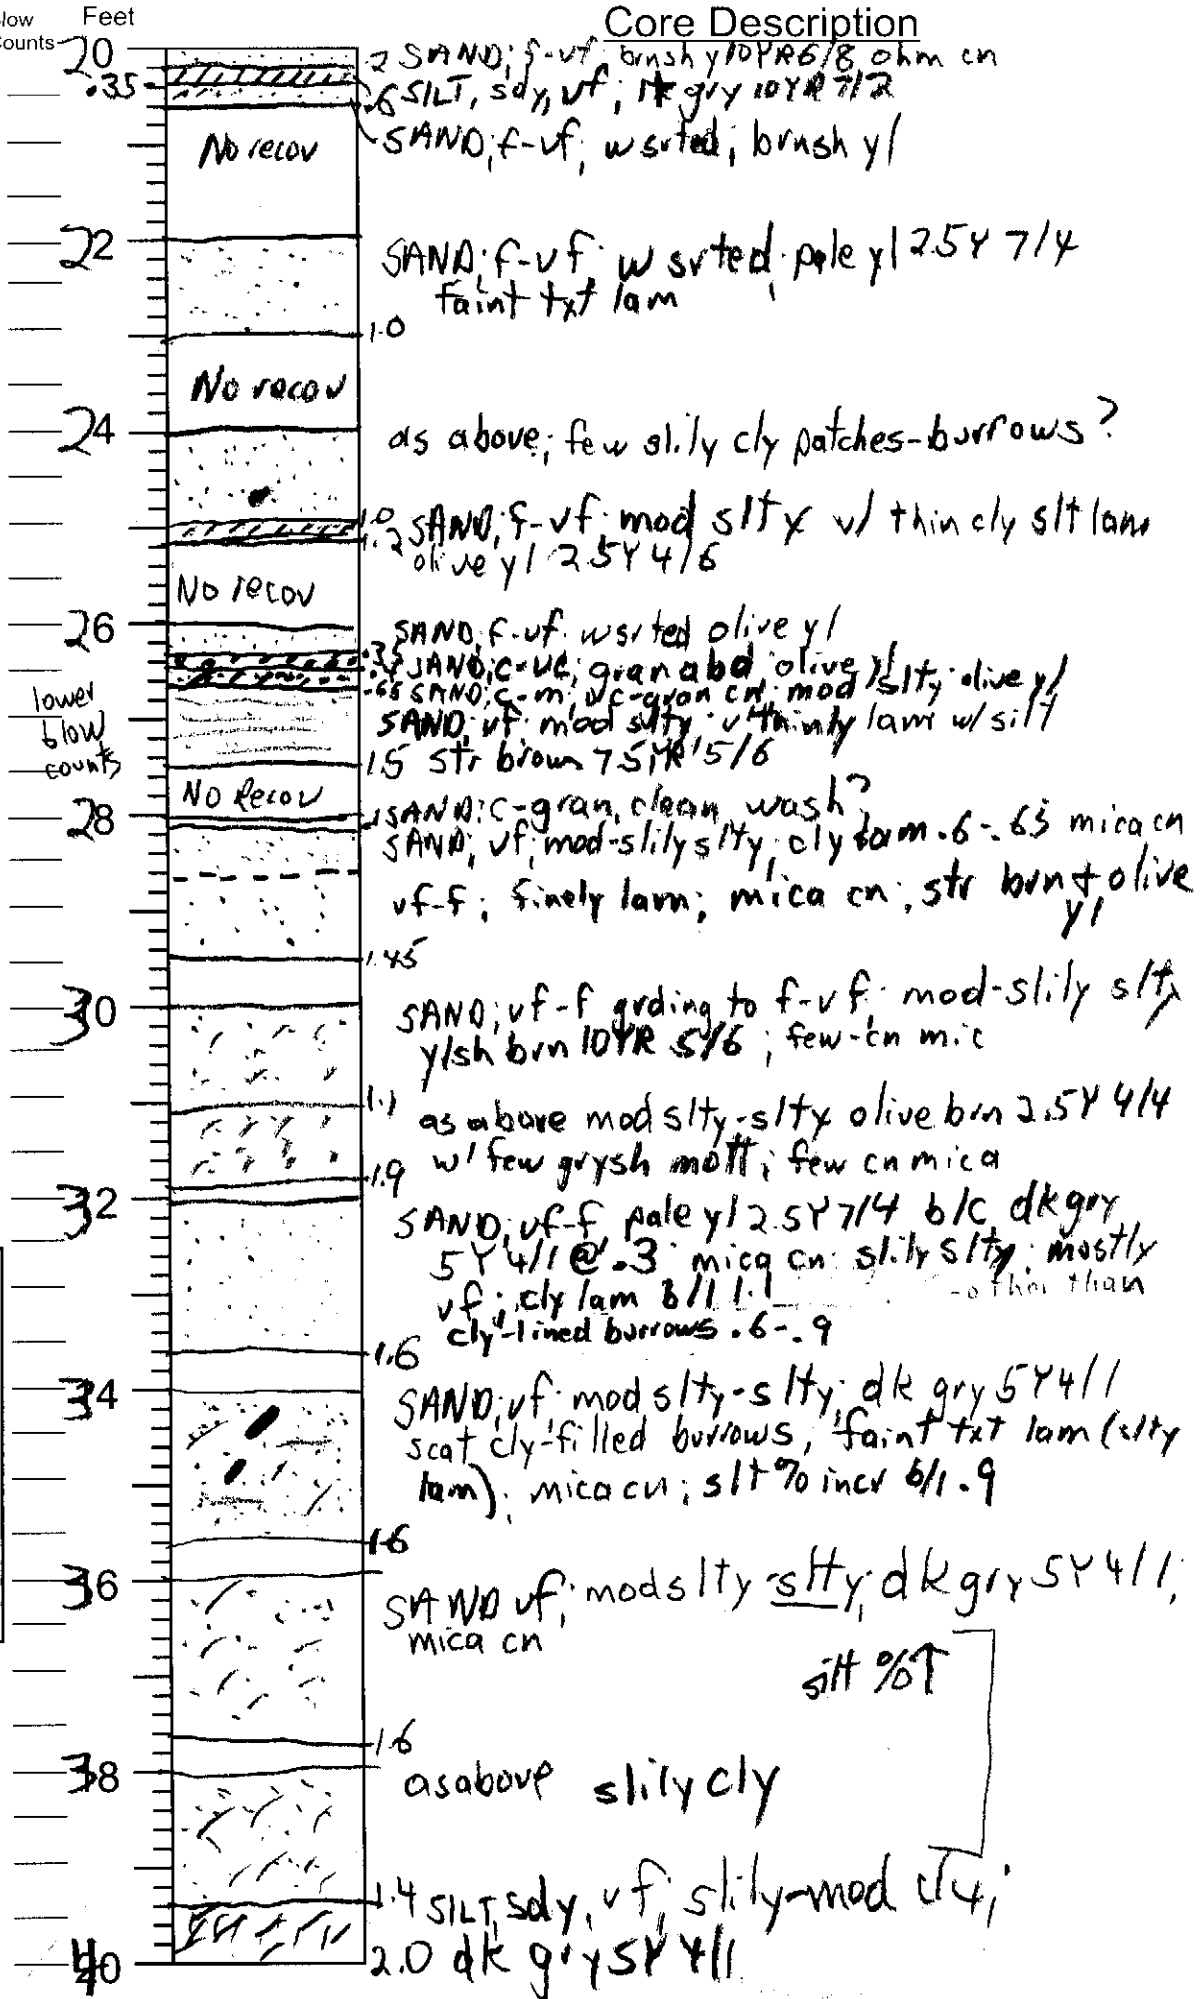 Blow Feet Core Description
Counts
20 .2 SAND; f-vf; brnsh yl 10YR6/8 ohm cn
.35 SILT, sdy, vf; lt gry 10YR 7/2
.6
SAND; f-vf; wsrted; brnsh yl
No recov
22 SAND; f-vf; w srted; pale yl 2.5Y 7/4
faint txt lam
1.0
No recov
24 as above; few slily cly patches-burrows?
1.0 SAND; f-vf; mod slty w/ thin cly slt lam
1.2 olive yl 2.5Y 4/6
No recov
26 SAND; f-vf; wsrted olive yl
.35 SAND; c-vc; gran abd olive yl
.65 SAND; c-m; vc-gran cn; mod slty; olive yl
lower SAND; vf; mod slty; v thinly lam w/ silt
blow
counts 1.5 str brown 7.5YR 5/6
No Recov
28 .1 SAND; c-gran, clean, wash?
SAND; vf; mod-slily slty; cly lam .6-.65 mica cn
vf-f; finely lam; mica cn; str brn + olive
yl
1.45
30 SAND; vf-f grding to f-vf; mod-slily slty
ylsh brn 10YR 5/6; few-cn mic
1.1 as above mod slty-slty olive brn 2.5Y 4/4
w/ few grysh mott; few cn mica
1.9
32 SAND; vf-f pale yl 2.5Y 7/4 b/c dk gry
5Y 4/1 @ .3 mica cn; slily slty; mostly
vf; cly lam b/l 1.1 -other than
cly-lined burrows .6-.9
1.6
34 SAND; vf; mod slty-slty; dk gry 5Y4/1
scat cly-filled burrows; faint txt lam (slty
lam); mica cn; slt % incr b/l .9
1.6
36 SAND vf; mod slty-slty; dk gry 5Y 4/1;
mica cn
silt %↑
1.6
38 as above slily cly
1.4 SILT, sdy, vf; slily-mod
40 2.0 dk gry 5Y 4/1